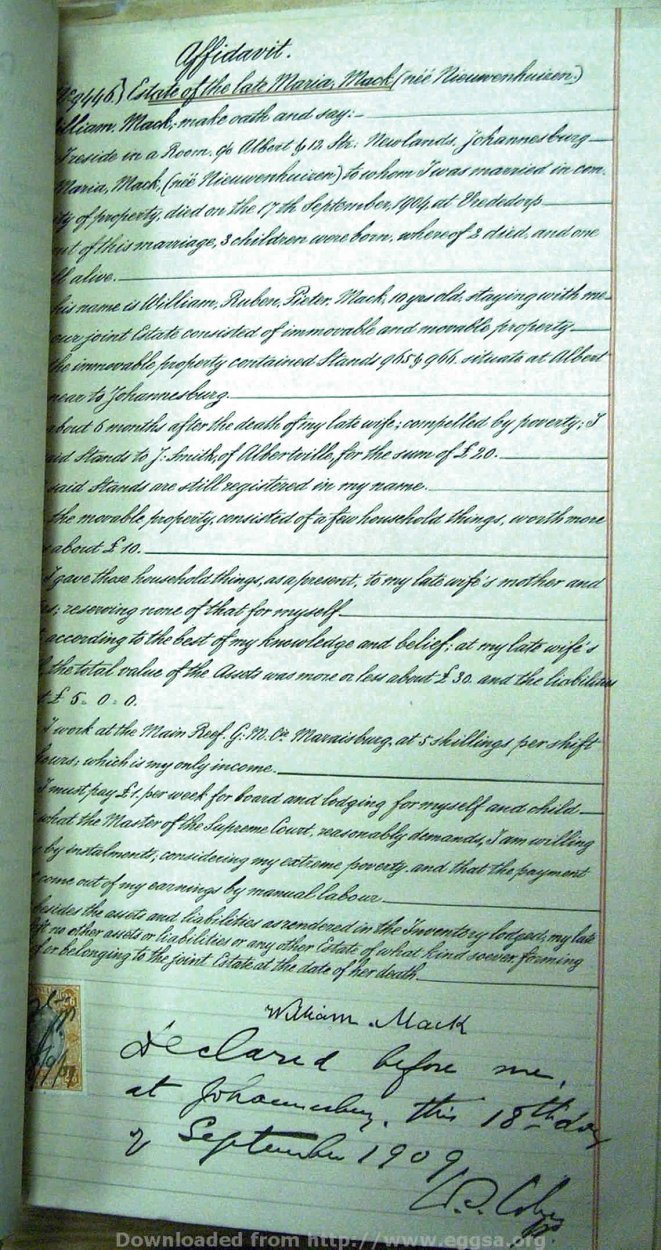 Affidavit.
9446) Estate of the late Maria, Mack, (née Nieuwenhuizen.)
illiam, Mack, make oath and say:-
I reside in a Room. c/o Albert & 12 Str: Newlands, Johannesburg
Maria, Mack, (née Nieuwenhuizen) to whom I was married in com.
ity of property, died on the 17th September, 1904 at Vrededorp
ut of this marriage, 3 children were born, where of 2 died, and one
ll alive.
his name is William, Ruben, Pieter, Mack, 10 yrs old, staying with me
our joint Estate consisted of immovable and movable property
the immovable property contained Stands 965 & 966. situate at Albert
near to Johannesburg
about 6 months after the death of my late wife; compelled by poverty; I
said Stands to J: Smith, of Albertville, for the sum of £20.
said Stands are still registered in my name.
the movable property, consisted of a few household things, worth more
about £10.
I gave those household things, as a present, to my late wife's mother and
es; reserving none of that for myself
according to the best of my knowledge and belief; at my late wife's
the total value of the Assets was more or less about £30. and the liabilities
t £5. 0. 0.
I work at the Main Reef. G. M. Co. Maraisburg, at 5 shillings per shift
hours; which is my only income.
I must pay £1. per week for board and lodging for myself and child
what the Master of the Supreme Court, reasonably demands, I am willing
by instalments, considering my extreme poverty, and that the payment
come out of my earnings by manual labour.
besides the assets and liabilities as rendered in the Inventory lodged, my late
ft no other assets or liabilities or any other Estate of what kind soever forming
of or belonging to the joint Estate at the date of her death.
William. Mack
Declared before me,
at Johannesburg, this 18th day
of September 1909
Downloaded from http://www.eggsa.org